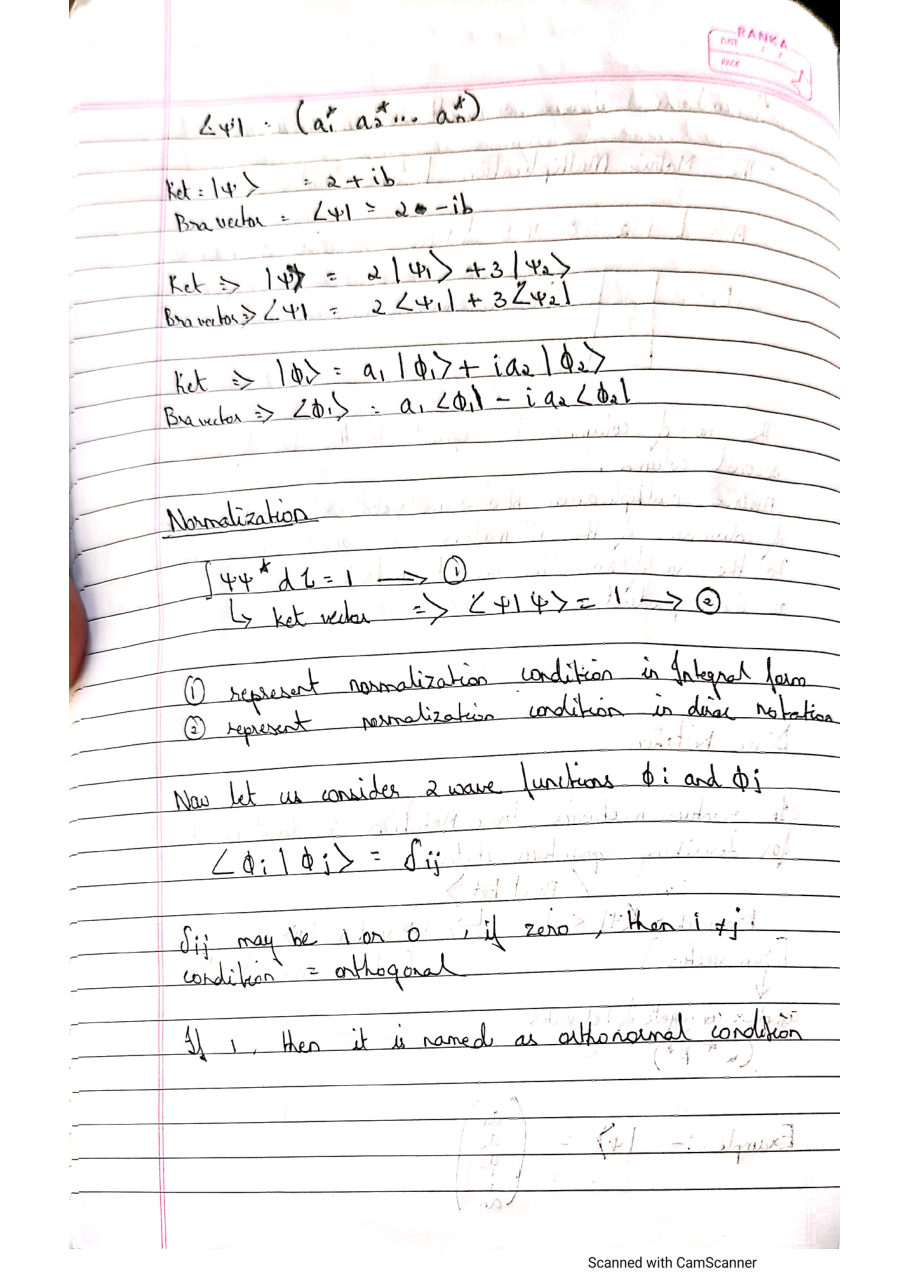 RANKA
DATE / /
PAGE
<ψ| = (a₁* a₂* ... aₙ*)
Ket = |ψ> = 2 + ib
Bra vector = <ψ| = 2 - ib
Ket => |ψ> = 2|ψ₁> + 3|ψ₂>
Bra vector => <ψ| = 2<ψ₁| + 3<ψ₂|
Ket => |ϕ₁> = a₁|ϕ₁> + ia₂|ϕ₂>
Bra vector => <ϕ₁> = a₁<ϕ₁| - ia₂<ϕ₂|
Normalization
∫ψψ* dτ = 1 → ①
↳ ket vector => <ψ|ψ> = 1 → ②
① represent normalization condition in Integral form
② represent normalization condition in dirac notation
Now let us consider 2 wave functions ϕi and ϕj
<ϕi|ϕj> = δij
δij may be 1 or 0, if zero, then i ≠ j
condition = orthogonal
If 1, then it is named as orthonormal condition
Scanned with CamScanner